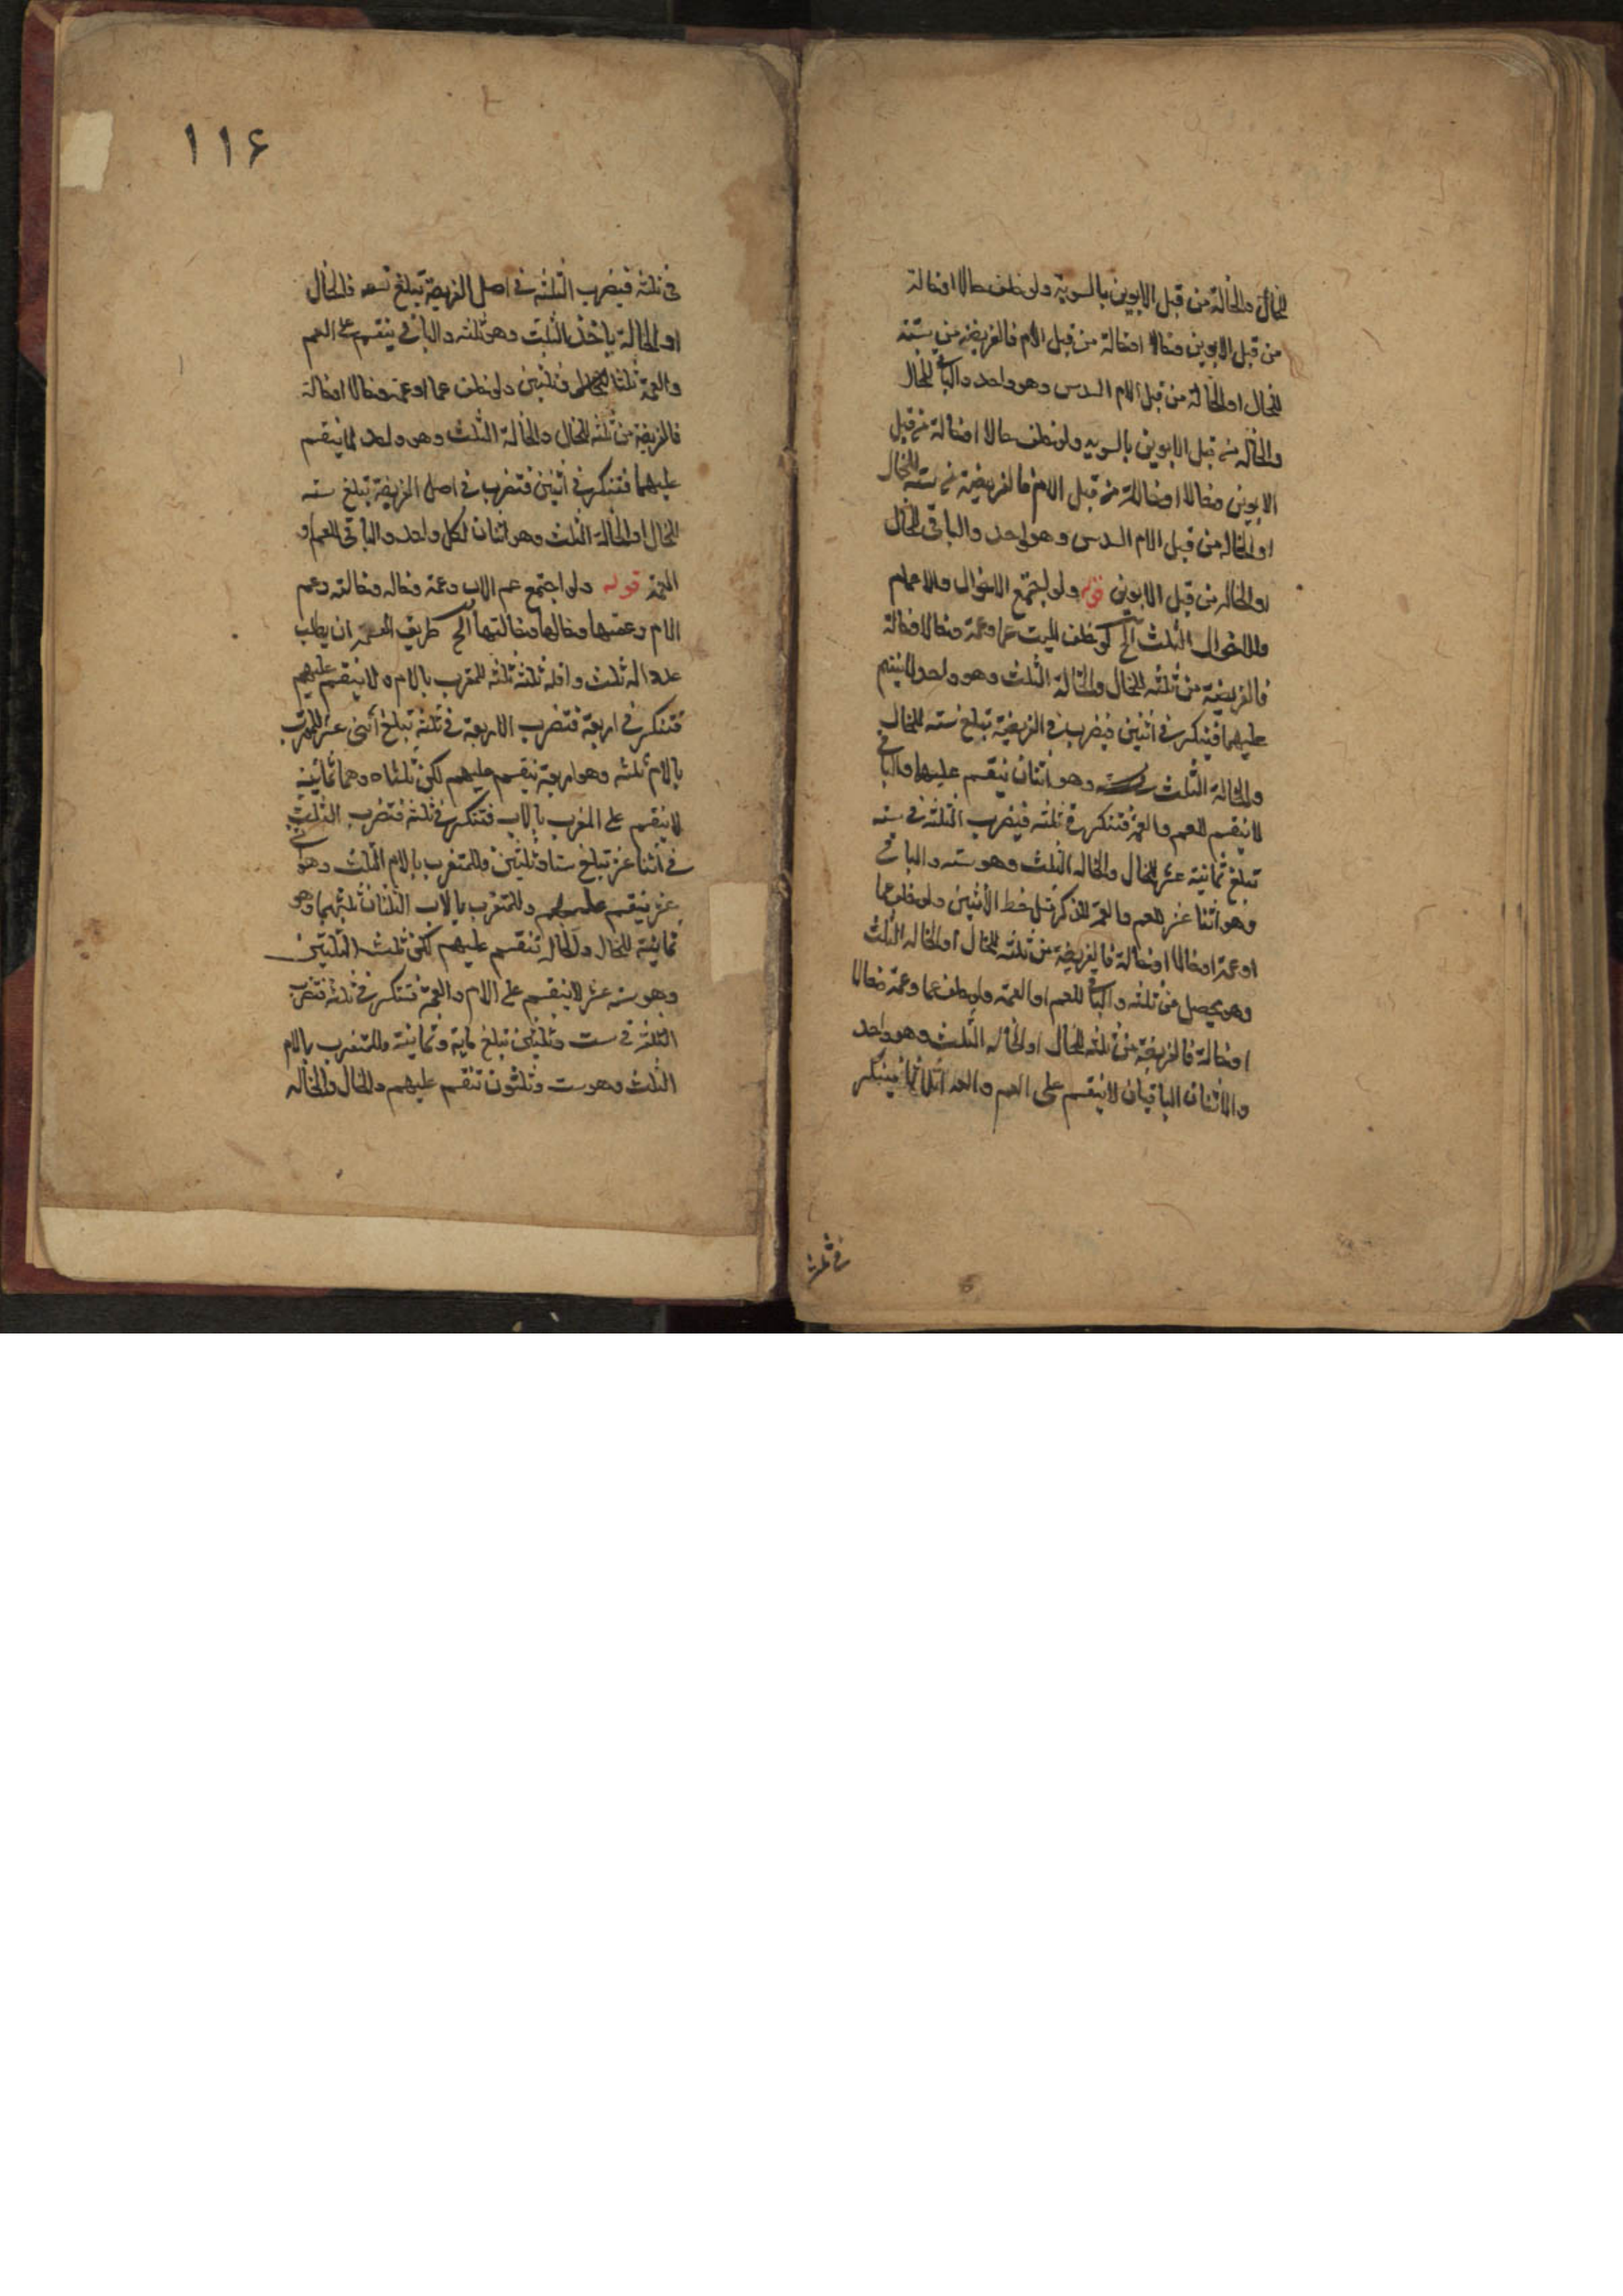 للخال والخالة من قبل الابوين بالسوية ولو خلف خالا اوخالة
من قبل الابوين وخالا اوخالة من قبل الام فالفريضة من ستة
للخال او الخالة من قبل الام السدس وهو واحد والباقي للخال
والخاله من قبل الابوين بالسويه ولو خلف خالا اوخالة من قبل
الابوين وخالا اوخالة من قبل الام فالفريضة من ستة للخال
او الخاله من قبل الام السدس وهو واحد والباقى للخال
او الخاله من قبل الابوين قوله ولو اجتمع الاخوال والاعمام
فللاخوال الثلث الخ لو خلف الميت عما وعمة وخالا وخالة
فالفريضة من ثلثه للخال والخالة الثلث وهو واحد لا ينقسم
عليهما فتنكسر في اثنين فيضرب في الفريضة تبلغ سته للخال
والخالة الثلث وهو اثنان ينقسم عليهما والباقي
لا ينقسم للعم والعمة فتنكسر في ثلثه فيضرب الثلثة في سته
تبلغ ثمانية عشر للخال والخاله الثلث وهو سته والباقي
وهو اثنا عشر للعم والعمة للذكر مثل حظ الانثيين ولو خلف عما
اوعمة اوخالا اوخالة فالفريضة من ثلثه للخال او الخاله الثلث
وهو يحصل من ثلثه والباقي للعم او العمة ولو خلف عما وعمة وخالا
اوخالة فالفريضة من ثلثه للخال او الخاله الثلث وهو واحد
والاثنان الباقيان لا ينقسم على العم والعمة اثلاثا فينكسر
في ثلثه
١١۶
في ثلثه فيضرب الثلثه في اصل الفريضة تبلغ تسعه فالخال
او الخالة ياخذ الثلث وهو ثلثه والباقي ينقسم على العم
والعمة ثلثا وثلثين ولو خلف عما اوعمة وخالا وخالة
فالفريضة من ثلثه للخال والخالة الثلث وهو واحد لا ينقسم
عليهما فتنكسر في اثنين فتضرب في اصل الفريضة تبلغ سته
للخال او الخالة الثلث وهو اثنان لكل واحد والباقى للعم او
العمة قوله ولو اجتمع عم الاب وعمته وخاله وخالته وعم
الام وعمتها وخالها وخالتها الخ طريق القسمة ان يطلب
عددا له ثلث واقله ثلثة ثلثه للمقرب بالام ولا ينقسم عليهم
فتنكسر في اربعة فتضرب الاربعة في ثلثه تبلغ اثنى عشر للمقرب
بالام ثلثه وهو اربعة ينقسم عليهم لكن ثلثاه وهما ثمانية
لا ينقسم على المقرب بالاب فتنكسر في ثلثه فتضرب الثلث
في اثنا عشر تبلغ ستا وثلثين وللمتقرب بالام الثلث وهو اثني
عشر ينقسم عليهم وللمتقرب بالاب الثلثان ثلثهما وهو
ثمانية للخال والخاله تنقسم عليهم لكن ثلث الثلثين
وهو سته عشر لا ينقسم على الام والعمة فتنكسر في ثلثه فتضرب
الثلثه في ست وثلثين تبلغ مايه وثمانية وللمتقرب بالام
الثلث وهو ست وثلثون تنقسم عليهم وللخال والخاله